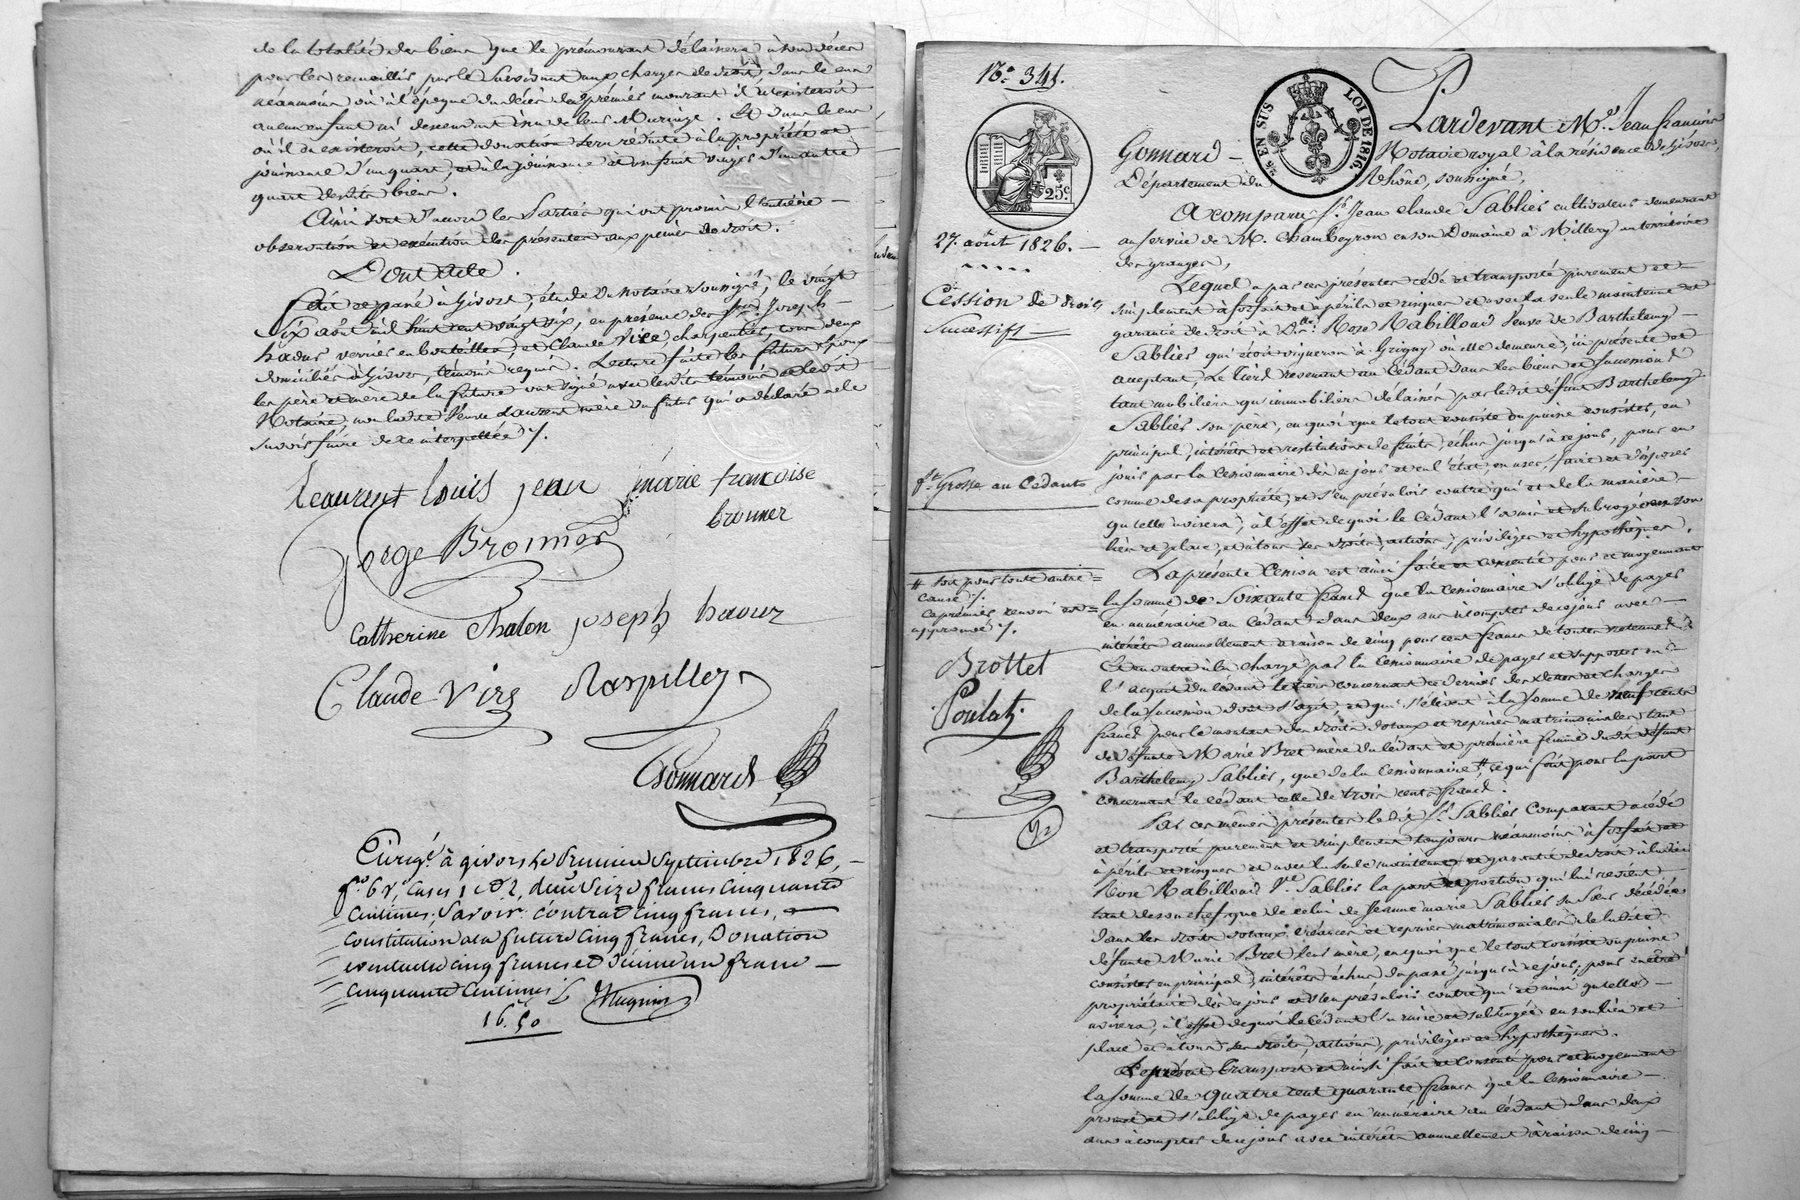 de la totalité des biens que le prémourant délaissera à son décès
pour les recueillir par le survivant aux charges de droit, dans le cas
néanmoins où à l'époque du décès du prémier mourant il n'existeroit
aucun enfant ni descendant issu de leur Mariage. Et dans le cas
où il en existeroit, cette donation sera réduite à la propriété et
jouissance d'un quart, et à la jouissance et usufruit d'un autre
quart desdits biens.
Ainsi sont d'accord les Parties qui ont promis l'entière
observation et exécution des présentes aux peines de droit.
Dont acte.
Fait et passé à Givors, étude du notaire soussigné, le vingt
six août mil huit cent vingt six, en présence des Srs Joseph
haour verrier en bouteilles, et Claude Vire, charpentier, tous deux
domiciliés à Givors, témoins requis. Lecture faite les futurs époux
les père et mère de la future ont signé avec lesdits témoins et ledit
Notaire, non ladite Veuve Laurent mère du futur qui a déclaré ne le
savoir faire de ce interpellée ./.
Leaurent louis jean marie francoise
bronner
Jorge Bronner
Catherine Chalon joseph haour
Claude Vire
Gonnard
Enregé à givors le Premier Septembre 1826,
fo 6 vo, cases 1 et 2, reçu seize francs cinquante
centimes, Savoir: contrat cinq francs,
constitution a la future cinq francs, Donation
eventuelle cinq francs et décime un franc
cinquante centimes
16 f. 50
No 341.
25 c.
26 EN SUS
LOI DE 1816.
27. août 1826.
Cession de droits
Successifs
f. Grosse au Cédant
# soit pour toute autre
cause ./.
ce prémier renvoi est
approuvé ./.
Brottet
Poulat
Pardevant Me. Jean francois
Gonnard Notaire royal à la résidence de Givors,
Département du Rhône, soussigné,
A comparu Sr. Jean claude Sablier cultivateur demeurant
au service de M. Chambeyron en son Domaine à Millery au territoire
des granges,
Lequel a par ces présentes cédé et transporté purement et
simplement à forfait et à périls et risques et avec la seule maintenue et
garantie de droit à Dlle. Rose Rabilloud Veuve de Barthelemy
Sablier qui étoit vigneron à Grigny où elle demeure, ici présente et
acceptant, Le tiers revenant au Cédant dans les biens et succession
tant mobiliers qu'immobiliers délaissés par ledit défunt Barthelemy
Sablier son père, en quoi que le tout consiste ou puisse consister, en
principal, intérêts et restitutions de fruits échus jusqu'à ce jour, pour en
jouir par la Cessionnaire dès ce jour et en l'état, en user, faire et disposer
comme de sa propriété, et s'en prévaloir contre qui et de la manière
qu'elle avisera, à l'effet de quoi le Cédant l'a mise et subrogée en son
lieu et place, et à tous ses droits, actions, privilèges et hypothèques.
La présente Cession est ainsi faite et consentie pour et moyennant
la somme de soixante francs que la Cessionnaire s'oblige de payer
en numéraire au Cédant dans deux ans à compter de ce jour avec
intérêts annuellement à raison de cinq pour cent francs de toutes retenues
Et en outre à la charge par la Cessionnaire de payer et supporter en
l'acquit du Cédant le tiers concernant ce dernier des dettes et charges
de la succession dont s'agit, et qui s'élèvent à la somme de neuf cents
francs pour le montant des droits dotaux et reprises matrimoniales tant
de défunte Marie Bret mère du Cédant et première femme dudit défunt
Barthelemy Sablier, que de la Cessionnaire #, ce qui fait pour la part
concernant le Cédant celle de trois cents francs.
Par ces mêmes présentes ledit Sr. Sablier Comparant a cédé
et transporté purement et simplement toujours néanmoins à forfait et
à périls et risques et avec la seule maintenue et garantie de droit à ladite
Rose Rabilloud Ve. Sablier la part et portion qui lui revient
tant de son chef que de celui de Jeanne marie Sablier sa sœur décédée
dans les droits dotaux, créances et reprises matrimoniales de ladite
défunte Marie Bret leur mère, en quoi que le tout consiste ou puisse
consister en principal, intérêts échus du passé jusqu'à ce jour, pour en être
propriétaire dès ce jour et s'en prévaloir contre qui et ainsi qu'elle
avisera, à l'effet de quoi le Cédant l'a mise et subrogée en son lieu et
place et à tous ses droits, actions, privilèges et hypothèques.
Le présent transport est ainsi fait et consenti pour et moyennant
la somme de quatre cent quarante francs que la Cessionnaire
promet et s'oblige de payer en numéraire au Cédant dans deux
ans à compter de ce jour avec intérêts annuellement à raison de cinq